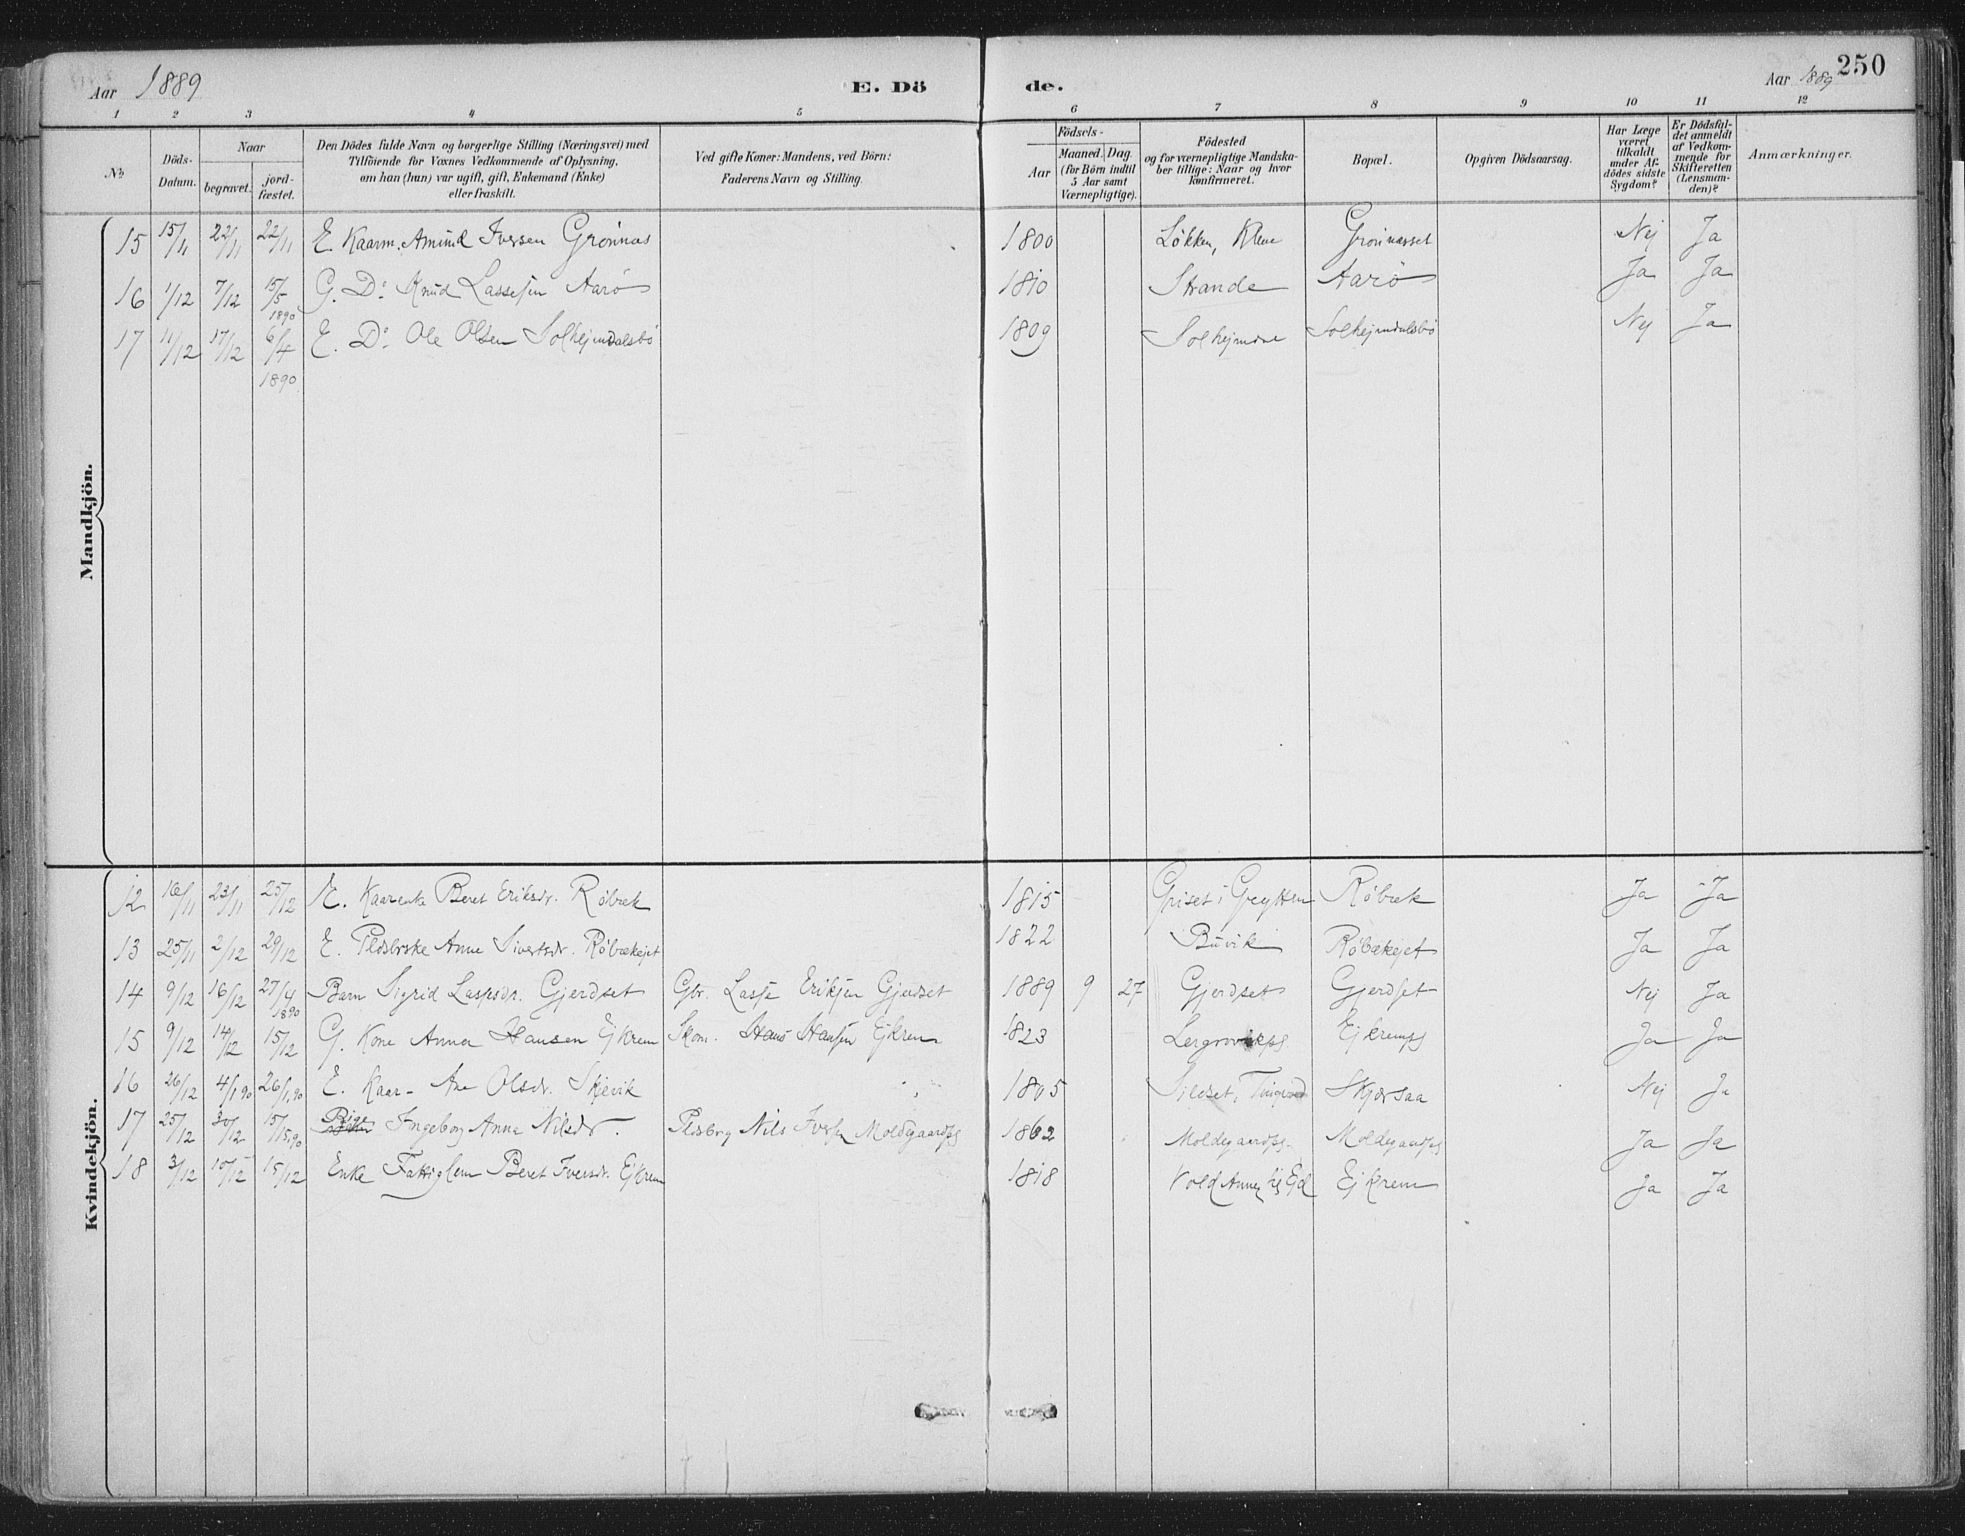 Aar 1889 E. Dö de. Aar 1889 250
1 2 3 4 5 6 7 8 9 10 11 12
№
Döds-Datum.
Naar
begravet.
jordfæstet.
Den Dödes fulde Navn og borgerlige Stilling (Næringsvei) med
Tilföiende for Voxnes Vedkommende af Oplysning,
om han (hun) var ugift, gift, Enkemand (Enke)
eller fraskilt.
Ved gifte Koner: Mandens, ved Börn:
Faderens Navn og Stilling.
Födsels-
Aar
Maaned. Dag.
(for Börn indtil
5 Aar samt
Værnepligtige).
Födested
og for værnepligtige Mandska-
ber tillige: Naar og hvor
konfirmeret.
Bopæl.
Opgiven Dödsaarsag.
Har Læge
været
tilkaldt
under Af-
dödes sidste
Sygdom?
Er Dödsfal-
det anmeldt
af Vedkom-
mende for
Skifteretten
(Lensman-
den)?
Anmærkninger.
Mandkjön.
15 15/11 22/11 22/11 E. Kaarm. Amund Iversen Grønnæs 1800 Løkken, Grønnæsset Nej Ja
16 1/12 7/12 15/5 1890 G. Do Knud Lassesen Aarø 1810 Strande Aarø Ja Ja
17 11/12 17/12 6/4 1890 E. Do Ole Olsen Solhejmdalsbø 1809 Solhejmdalsbø Nej Ja
Kvindekjön.
12 16/11 23/11 25/12 E. Kaarenke Beret Eriksdr. Røbæk 1815 Griset i Grytten Røbæk Ja Ja
13 25/11 2/12 29/12 E. Anne Sivertsdr. Røbækejet 1822 Buvik Røbækejet Ja Ja
14 9/12 16/12 27/4 1890 Barn Sigrid Lassesdr. Gjerdset Gbr. Lasse Eriksen Gjerdset 1889 9 27 Gjerdset Gjerdset Nej Ja
15 9/12 14/12 15/12 G. Kone Anna Hansen Ejkrem Skom. Hans Hansen Ejkrem 1823 Ejkremspl Ja Ja
16 26/12 4/1 90 26/1, 90 E. Kaar- Ane Olsdr. Skjevik 1805 Sildset, Tingvold Skjørsaa Nej Ja
17 25/12 30/12 15/5, 90 Pige Ingeborg Anna Nilsdr. Pladsbrg Nils Iversen Moldegaardspl 1862 Moldegaardspl. Moldegaardspl Ja Ja
18 3/12 10/12 15/12 Enke Fattiglem Beret Iversdr. Ejkrem 1818 Vold Ejkrem Ja Ja